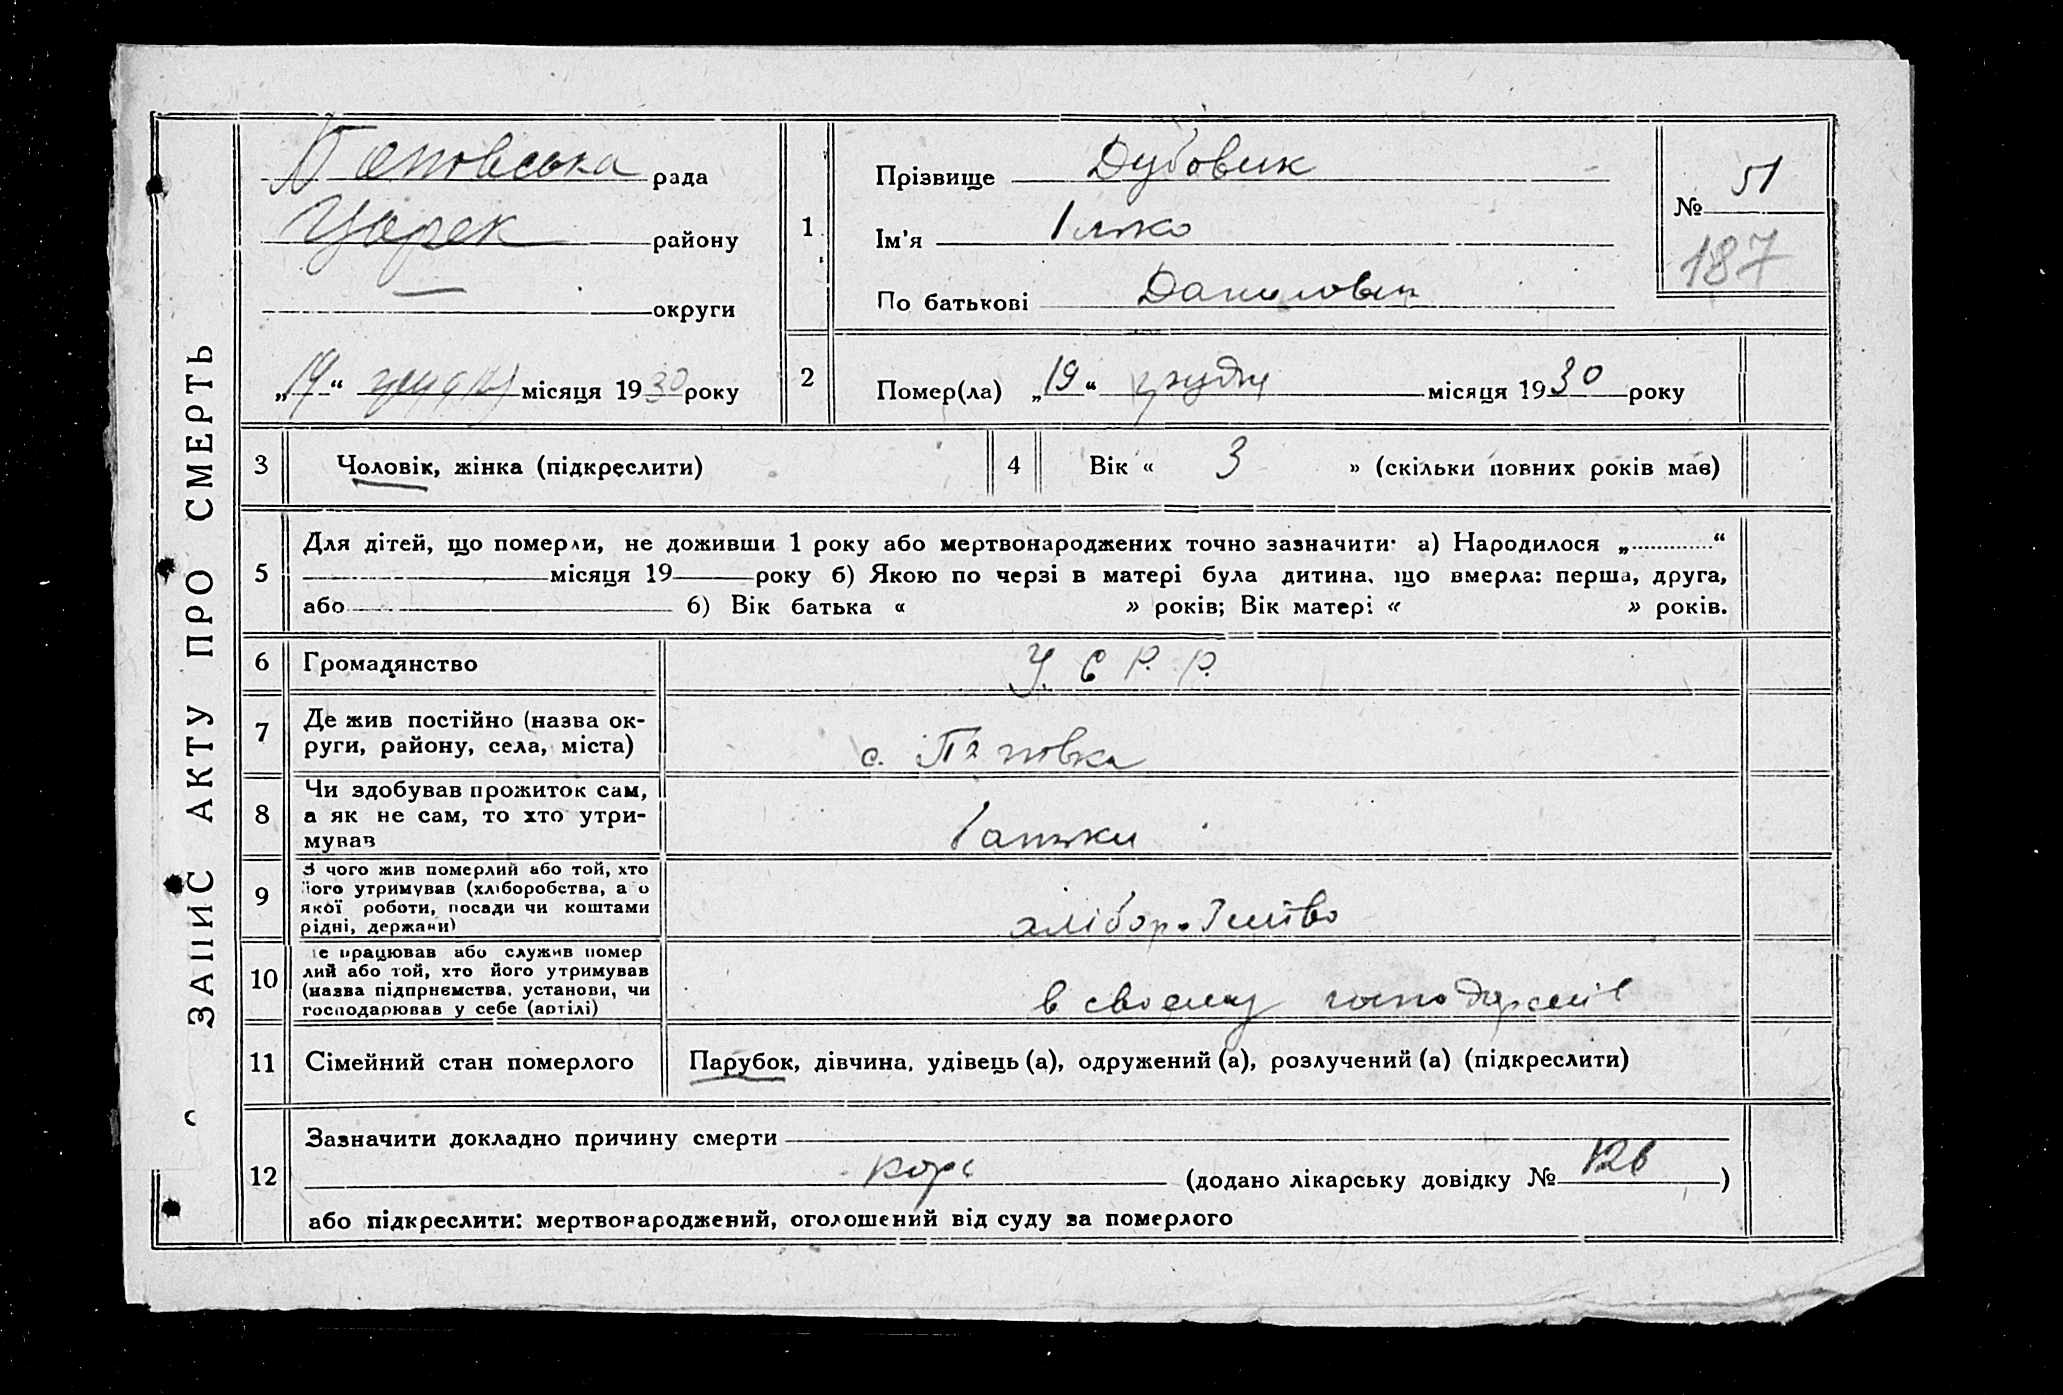 ЗАПИС АКТУ ПРО СМЕРТЬ
рада
району
округи
„19“ грудня місяця 1930 року
1
Прізвище Дубовик
Ім'я Ілько
По батькові Данилович
№ 51
187
2
Помер(ла) „19“ грудня місяця 1930 року
3
Чоловік, жінка (підкреслити)
4
Вік « 3 » (скільки повних років мав)
5
Для дітей, що померли, не доживши 1 року або мертвонароджених точно зазначити: а) Народилося „ “
місяця 19 року б) Якою по черзі в матері була дитина, що вмерла: перша, друга,
або б) Вік батька « » років; Вік матері « » років.
6
Громадянство У. С. Р. Р.
7
Де жив постійно (назва ок-
руги, району, села, міста)
с.
8
Чи здобував прожиток сам,
а як не сам, то хто утри-
мував
Батьки
9
З чого жив померлий або той, хто
його утримував (хліборобства, а о
якої роботи, посади чи коштами
рідні, держави)
хліборобство
10
е працював або служив помер
лий або той, хто його утримував
(назва підприємства, установи, чи
господарював у себе (артілі)
в своему господарстві
11
Сімейний стан померлого
Парубок, дівчина, удівець (а), одружений (а), розлучений (а) (підкреслити)
12
Зазначити докладно причину смерти
кор (додано лікарську довідку № 126)
або підкреслити: мертвонароджений, оголошений від суду за померлого